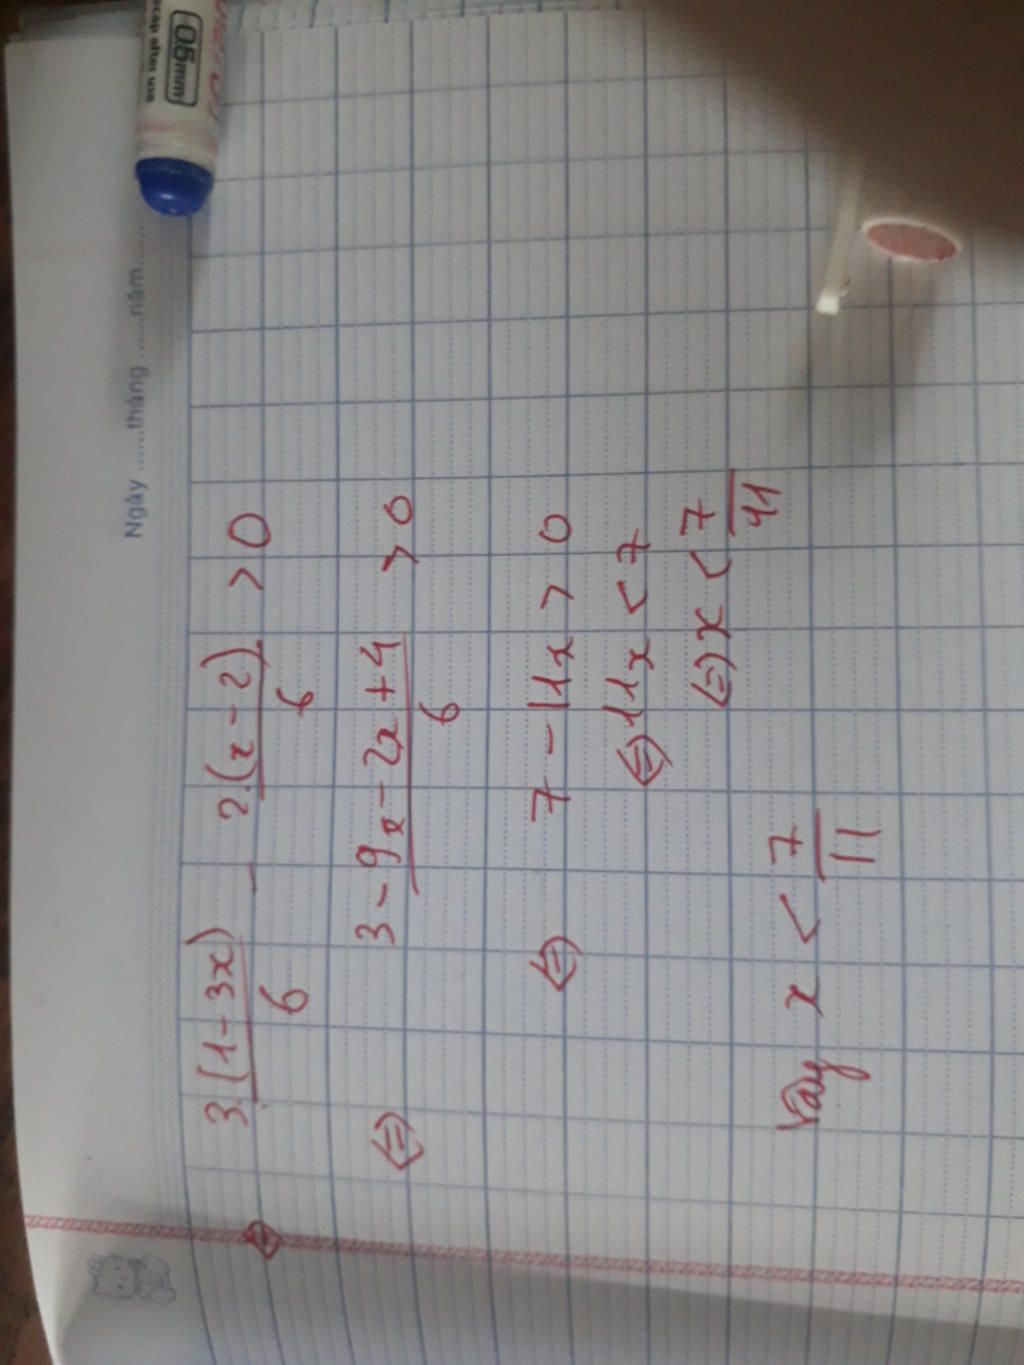 0.6mm
cap after use
Ngày ......tháng ......năm......
⇔ 3.(1-3x)/6 - 2.(x-2)/6 > 0
⇔ (3-9x-2x+4)/6 > 0
⇔ 7-11x > 0
⇔ 11x < 7
⇔ x < 7/11
Vậy x < 7/11